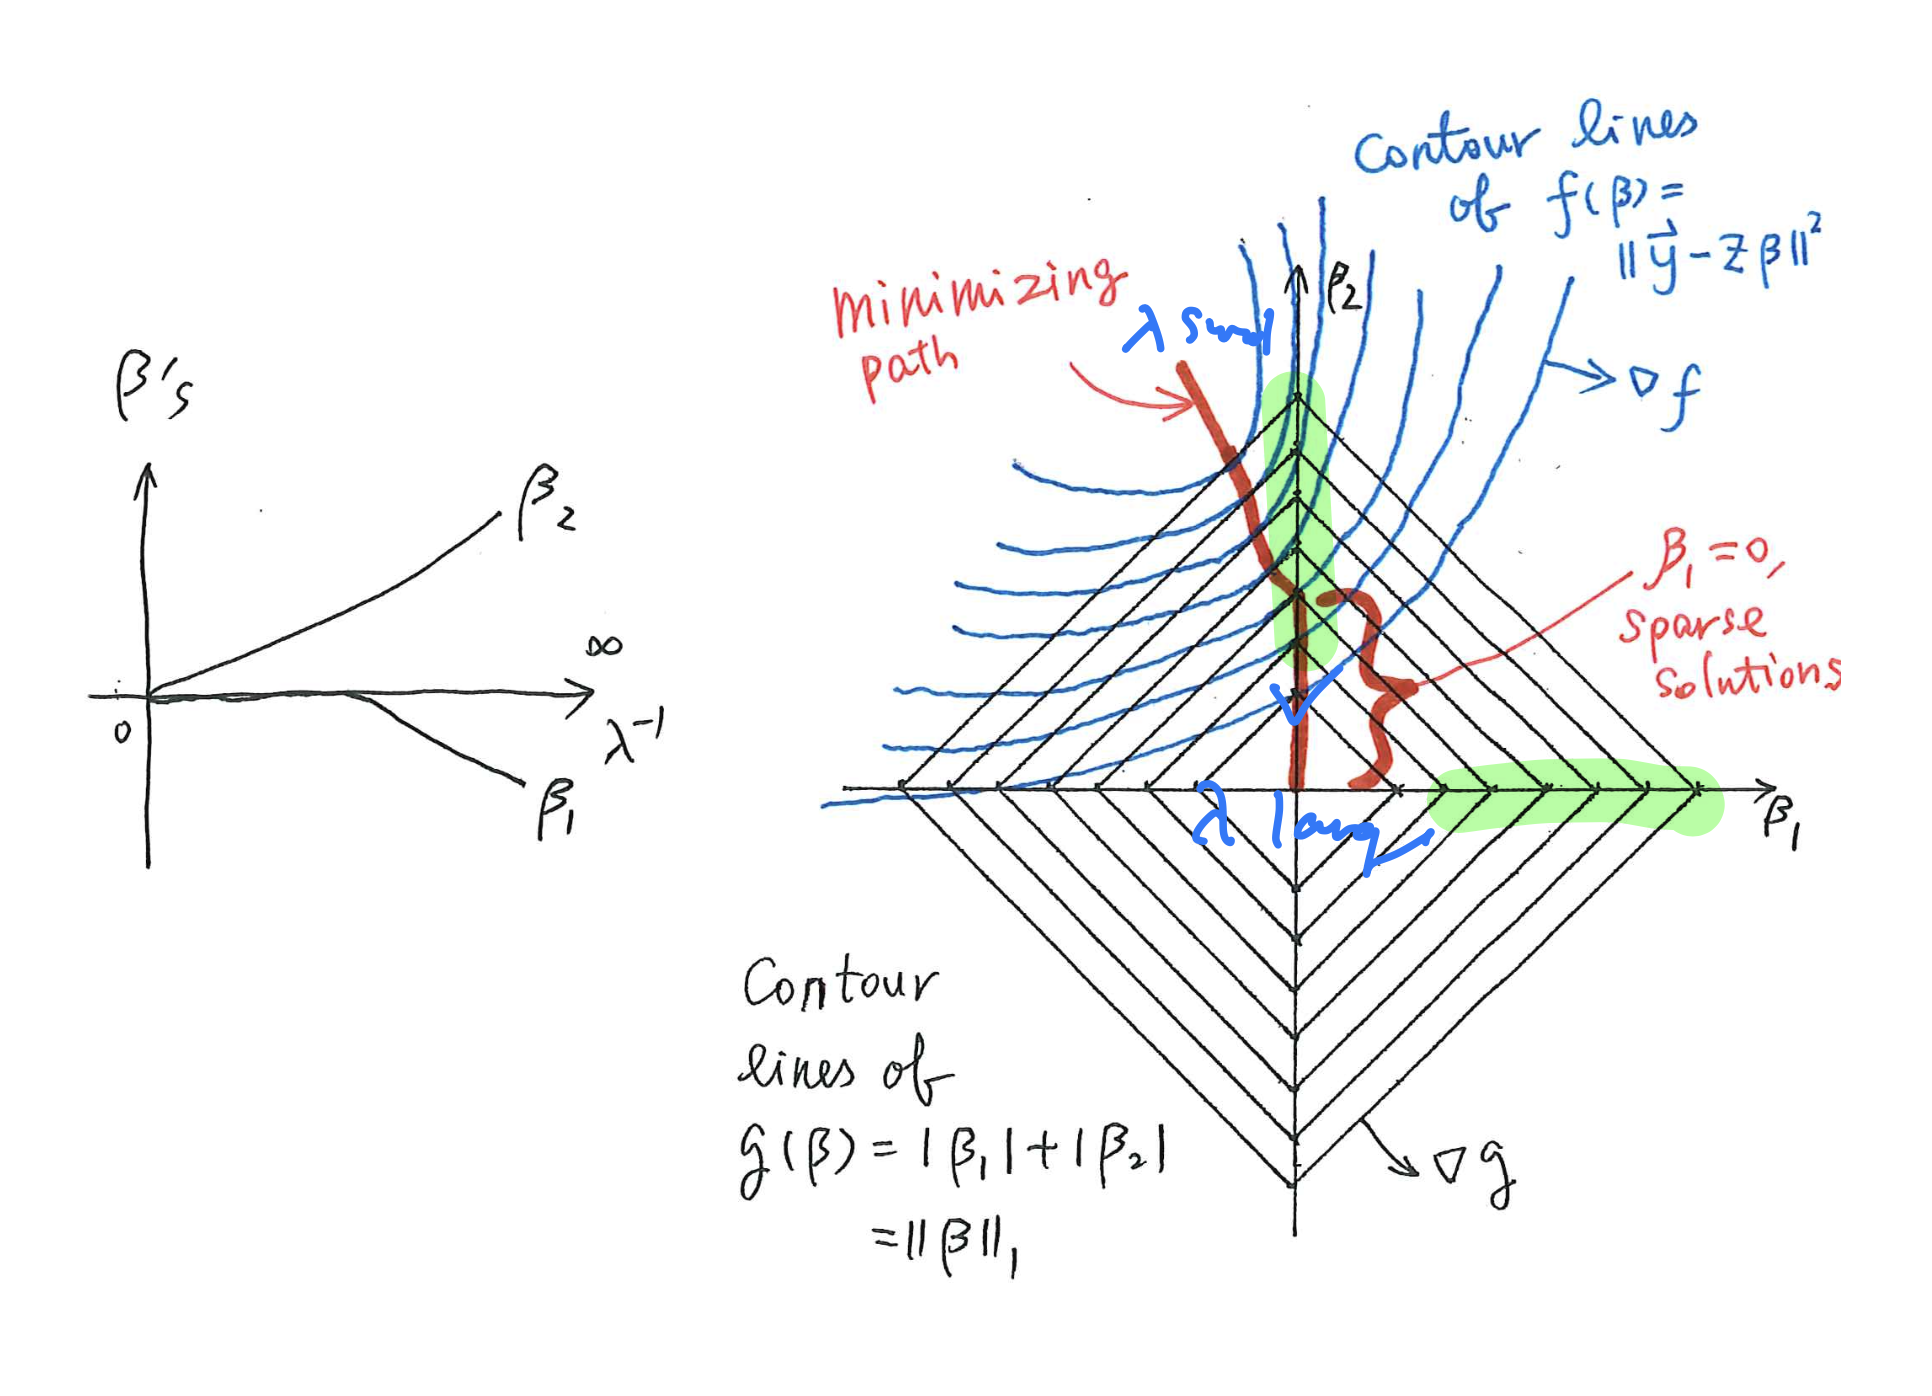 β's
β₂
∞
0
λ⁻¹
β₁
Contour lines
of f(β) =
‖y⃗ - Zβ‖²
minimizing
path
λ small
β₂
∇f
β₁ = 0,
sparse
solutions
λ large
β₁
Contour
lines of
g(β) = |β₁| + |β₂|
= ‖β‖₁
∇g